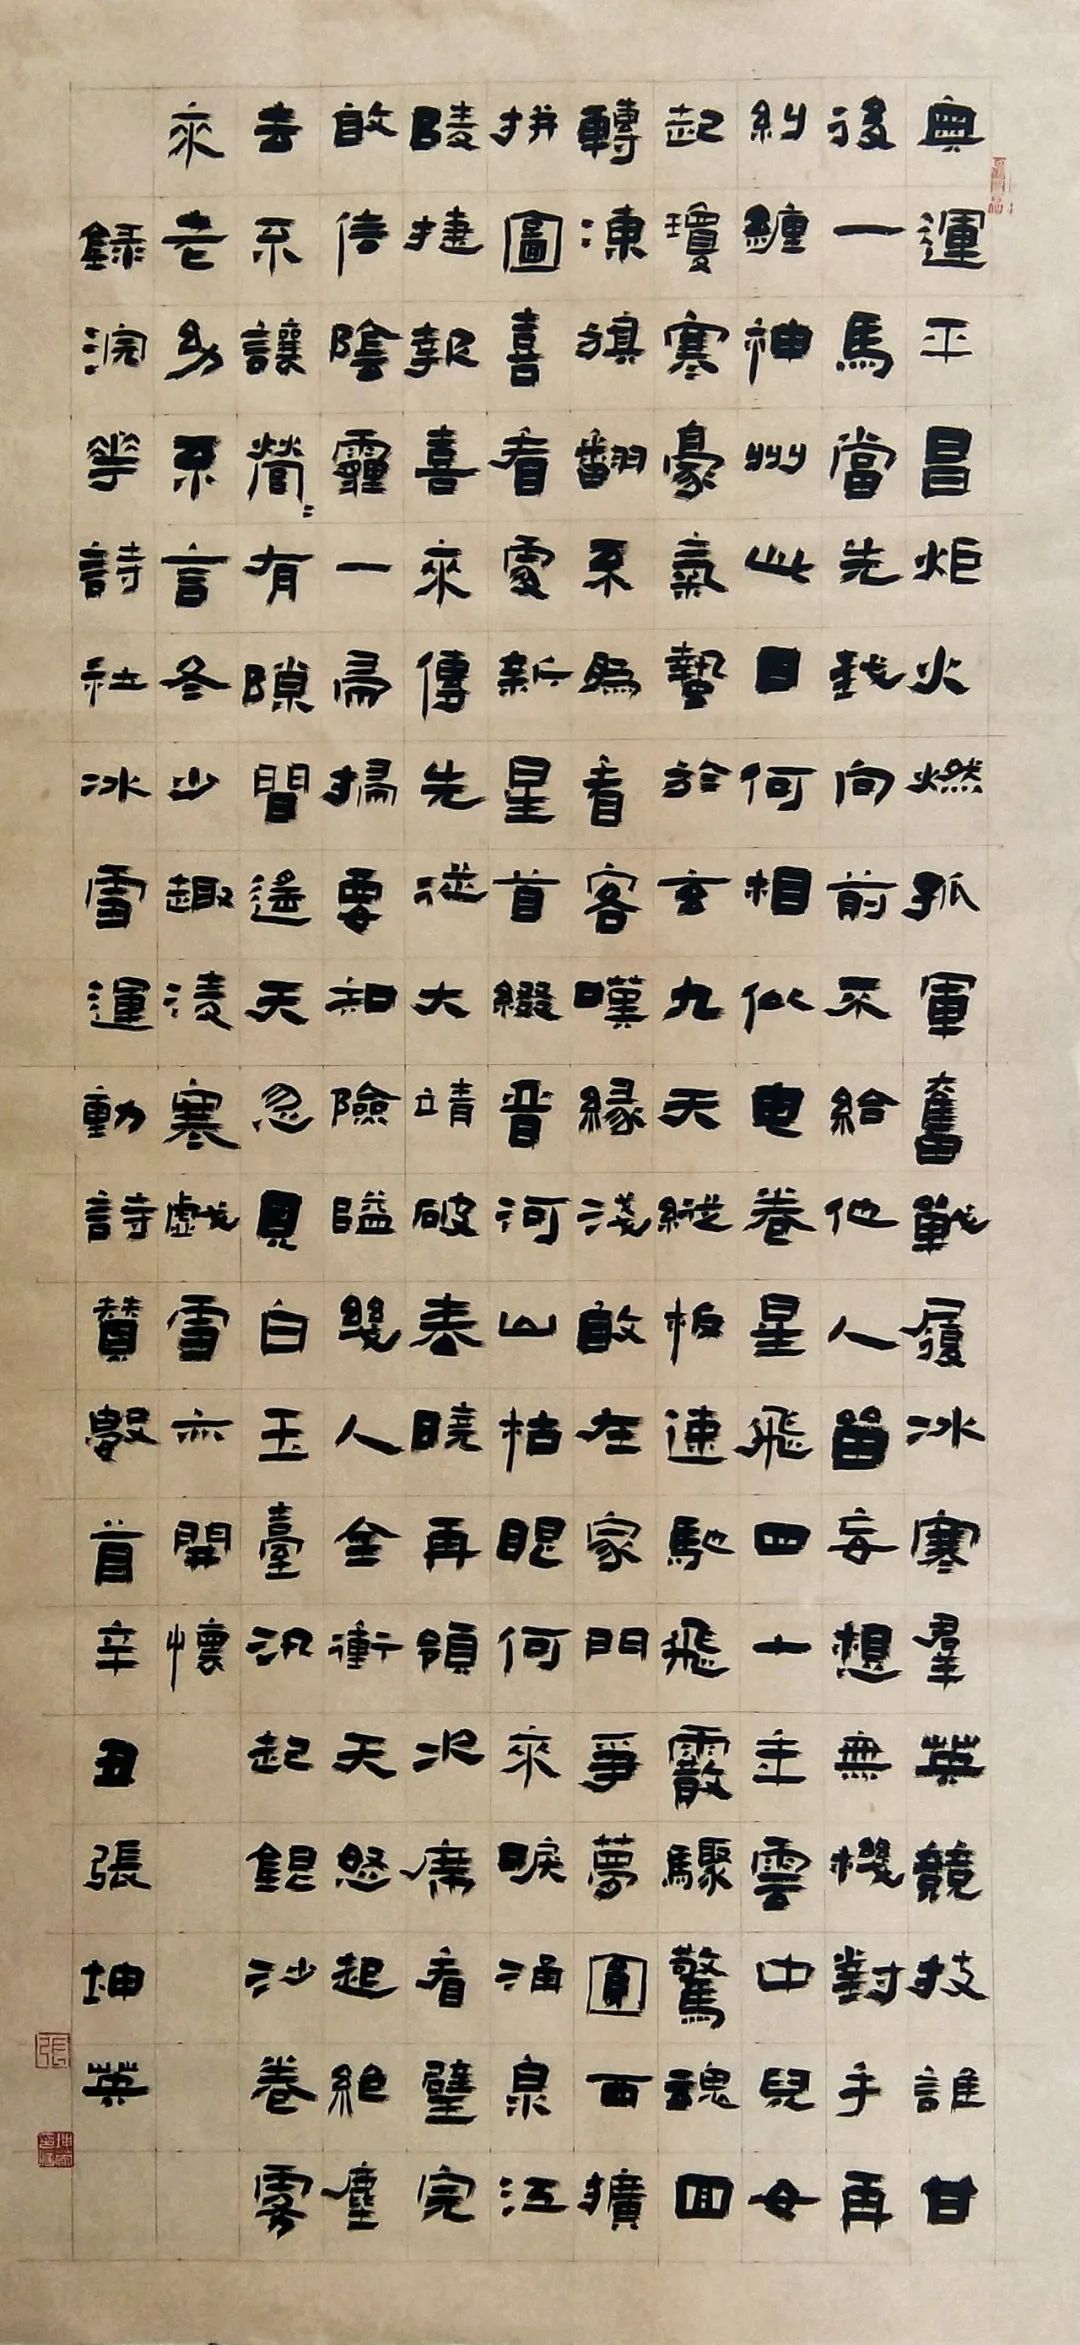 奧運平昌炬火燃孤軍奮戰履冰寒羣英競技誰甘
後一馬當先我向前不給他人留妄想無機對手再
糾纏神州此日何相似電卷星飛四十年雲中兒女
起瓊寒豪氣蟄於玄九天縱板速馳飛霰驟驚魂回
轉凍旗翻不為看客嘆緣淺敢在家門爭夢圓西擴
拼圖喜看處新星首綴晉河山枯眼何來淚涌泉江
陵捷報喜來傳先從大靖破春曉再領冰席看璧完
敢倍陰霾一帚掃要知險隘幾人全衝天怒起絕塵
去不讓鶯鶯有隙間遙天忽見白玉臺汎起銀沙卷霧
來老幼不言冬少趣凌寒戲雪亦開懷
錄浣華詩社冰雪運動詩贊數首辛丑張坤英
張